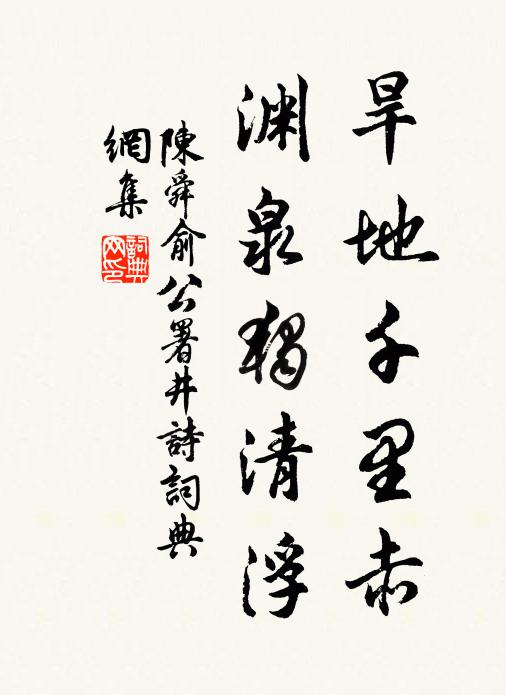 旱地千里赤
渊泉独清浮
陳舜俞公署井詩詞典
網集
詞典网印